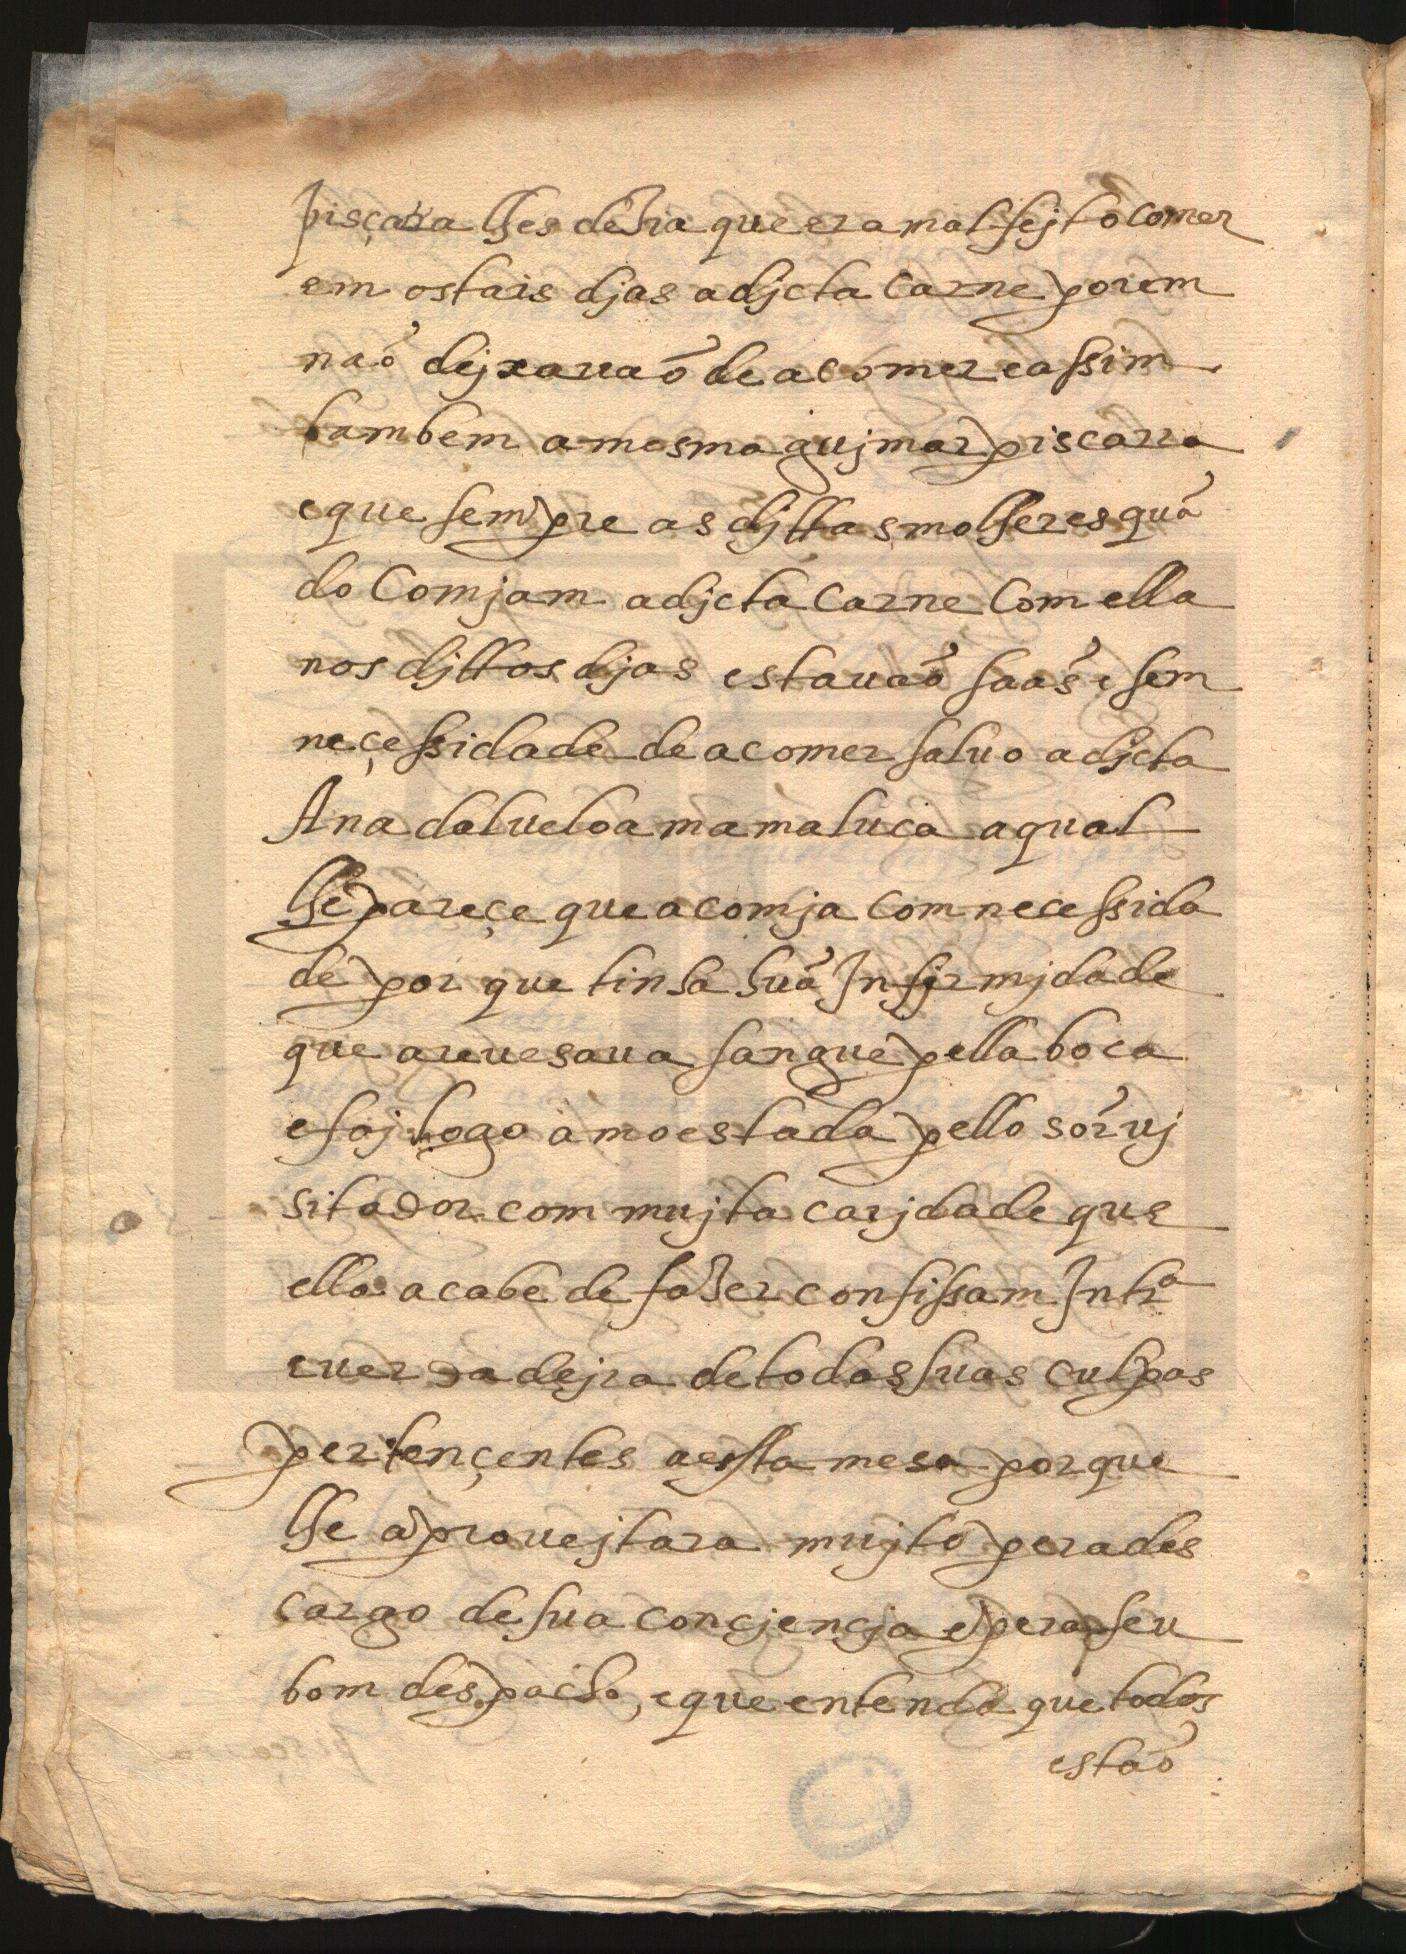 pisçarra lhes dezia que era mal fejto comer
em os tais djas a djcta carne porem
naõ dejxauaõ de a comer e assim
tambem a mesma gujmar piscarra
e que sempre as djttas molheres quã
do comjam a djcta carne com ella
nos djttos djas estauaõ saãs e sem
neçessidade de a comer saluo a djcta
Ana dalueloa mamaluca a qual
lhe pareçe que a comja com necessida
de por que tinha huã Infjrmjdade
que areuesaua sangue pella boca
e foj logo amoestada pello sõr uj
sitador com mujta carjdade que
ella acabe de fazer confissam Intrª
e uerdadejra de todas suas culpas
pertençentes a esta mesa porque
lhe aprouejtara mujto pera des
cargo de sua conçjençja e pera seu
bom despacho, e que entenda que todos
estaõ